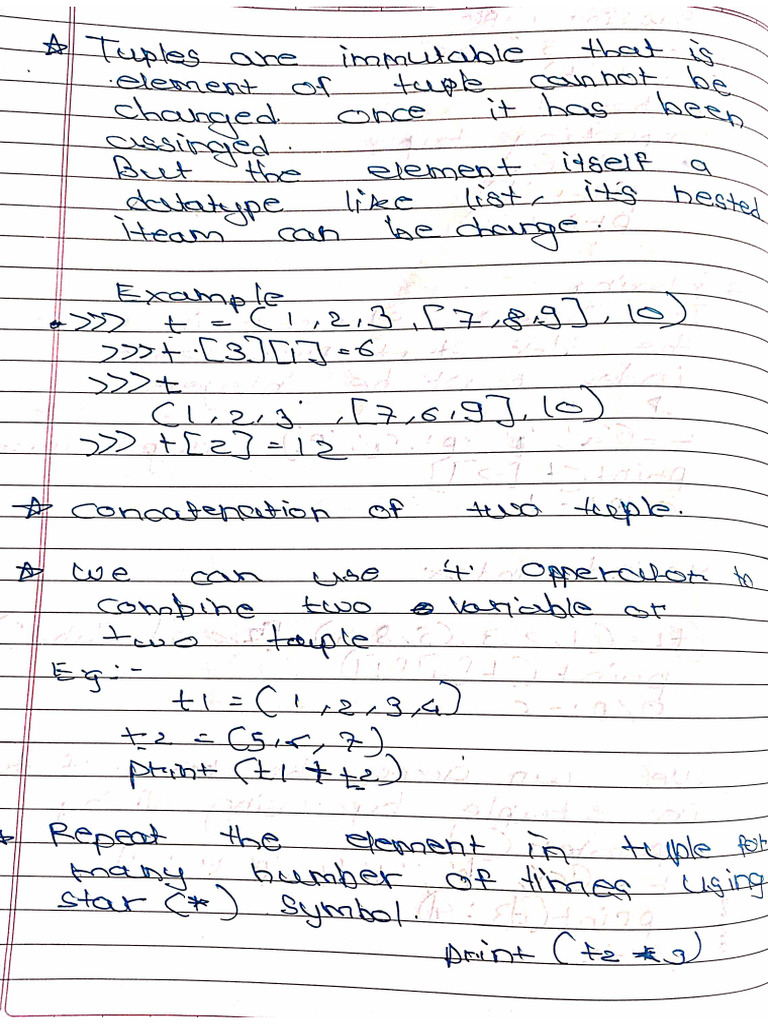 ☆ Tuples are immutable that is
element of tuple cannot be
changed. once it has been
assinged.
But the element itself a
datatype like list, it's nested
iteam can be change.
Example
>>> t = (1, 2, 3, [7, 8, 9], 10)
>>> t.[3][1] = 6
>>> t
(1, 2, 3, [7, 6, 9], 10)
>>> t[2] = 12
☆ Concatenation of two tuple.
☆ We can use + opperator to
combine two variable or
two tuple
Eg:-
t1 = (1, 2, 3, 4)
t2 = (5, 6, 7)
print (t1 + t2)
☆ Repeat the element in tuple for
many number of times using
star (*) symbol.
print (t2 * 3)